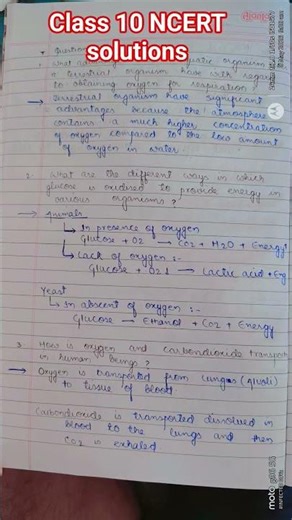 Class 10 NCERT
solutions
Question
organism
a terrestrial organism have with regard
to obtaining oxygen for respiration
→ Terrestrial organism have significant
advantages because the atmosphere
contains a much higher concentration
of oxygen compared to the loco amount
of oxygen in water.
2. What are the different ways in which
glucose is oxidised to provide energy in
various organisms?
→ Animals
↳ In presence of oxygen
Glucose + O2 → CO2 + H2O + Energy
↳ Lack of oxygen :-
Glucose + O2↓ → Lactic acid + Eng
Yeast
↳ In absent of oxygen :-
Glucose → Ethanol + CO2 + Energy
3. How is oxygen and carbondioxide transport
in human beings?
→ Oxygen is transported from lungs (alvoli)
to tissue of blood
Carbondioxide is transported dissolved in
blood to the lungs and then
CO2 is exhaled.